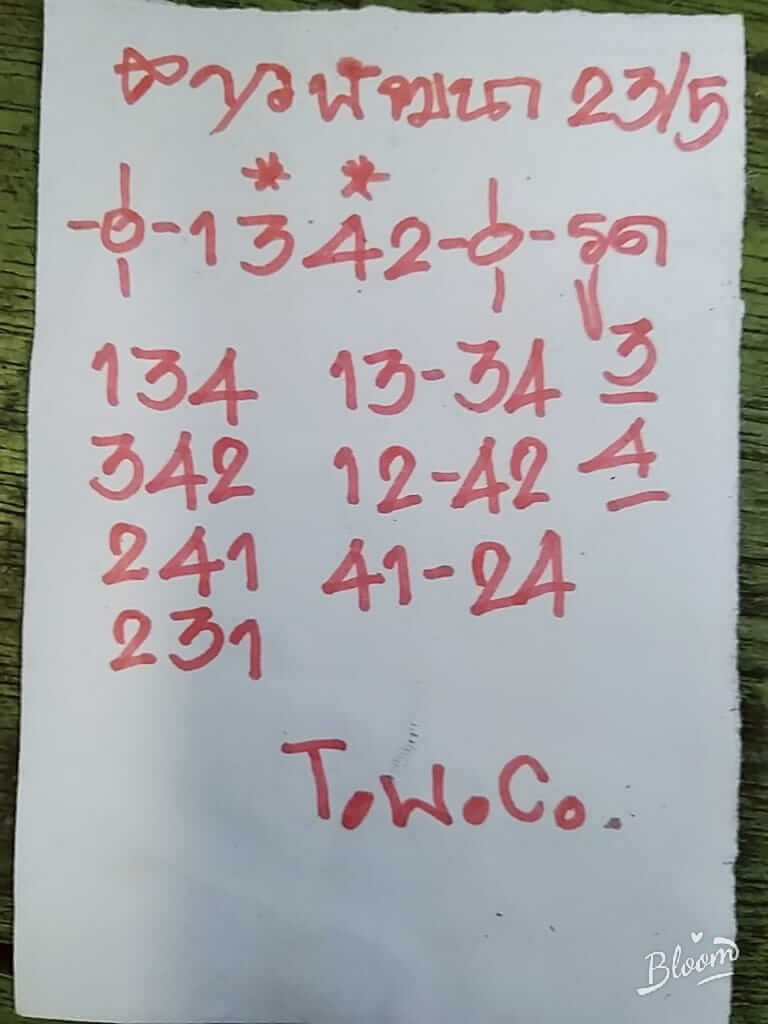 ลาวพัฒนา 23/5
* *
1342 รูด
134 13-34 3
342 12-42 4
241 41-24
231
T.W.C.
Bloom